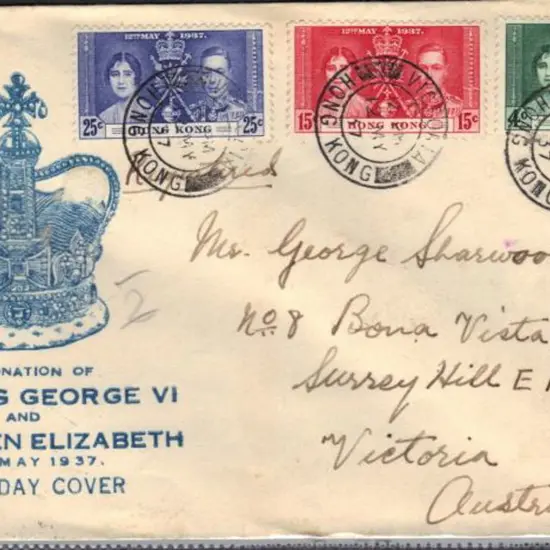 12TH MAY 1937.
25c HONG KONG 25c
12TH MAY 1937.
15c HONG KONG 15c
4c
VICTORIA
HONG KONG
HONG KONG
Registered
Mr. George Sharwoo
No 8 Bona Vista
Surrey Hill E
Victoria
Austr
NATION OF
G GEORGE VI
AND
EN ELIZABETH
MAY 1937.
DAY COVER